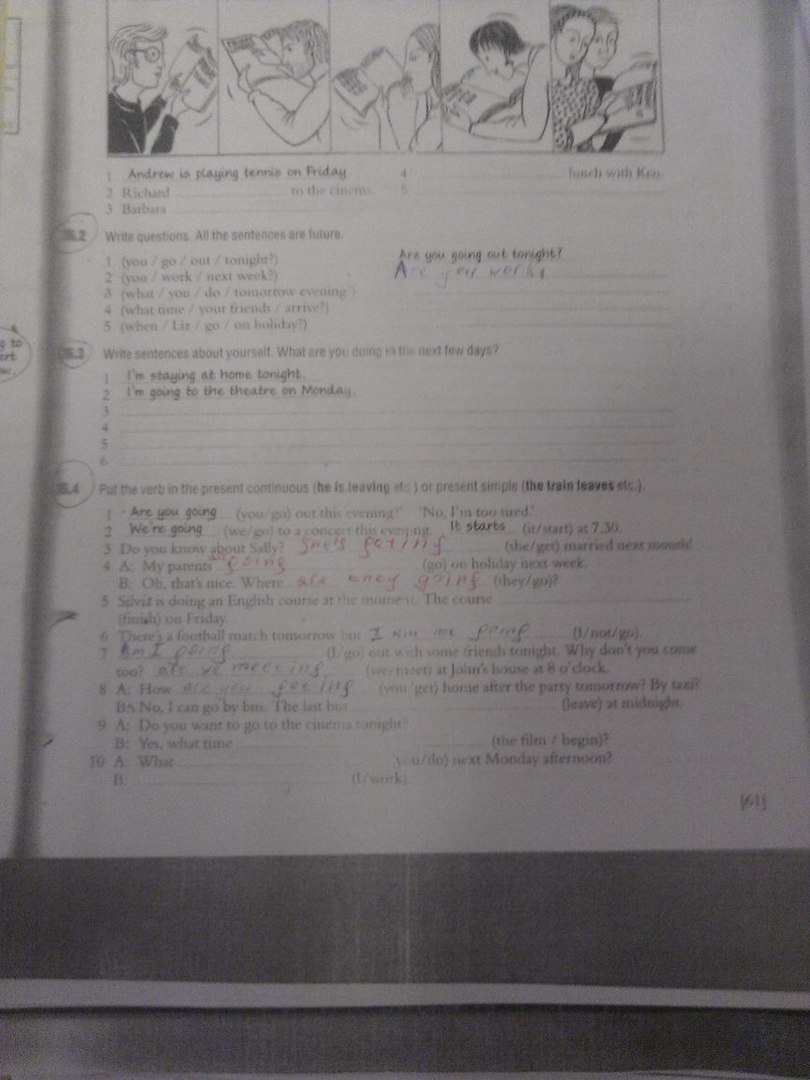 1 Andrew is playing tennis on Friday 4 lunch with Ken
2 Richard to the cinema. 5
3 Barbara
Write questions. All the sentences are future.
Are you going out tonight?
1 (you / go / out / tonight?)
2 (you / work / next week?) Are you work
3 (what / you / do / tomorrow evening?)
4 (what time / your friends / arrive?)
5 (when / Liz / go / on holiday?)
Write sentences about yourself. What are you doing in the next few days?
1 I'm staying at home tonight.
2 I'm going to the theatre on Monday.
3
4
5
6
Put the verb in the present continuous (he is leaving etc.) or present simple (the train leaves etc.).
1 Are you going (you/go) out this evening?' 'No, I'm too tired'
2 We're going (we/go) to a concert this evening. It starts (it/start) at 7.30.
3 Do you know about Sally? She's geting (she/get) married next month!
4 A: My parents going (go) on holiday next week.
B: Oh, that's nice. Where are they going (they/go)?
5 is doing an English course at the moment. The course
(finish) on Friday.
6 There's a football match tomorrow but I am not going (I/not/go).
7 Am I going (I/go) out with some friends tonight. Why don't you come
too? are we meeting (we/meet) at John's house at 8 o'clock.
8 A: How are you geting (you/get) home after the party tomorrow? By taxi?
B: No, I can go by bus. The last bus (leave) at midnight.
9 A: Do you want to go to the cinema tonight?
B: Yes, what time (the film / begin)?
10 A: What you/do) next Monday afternoon?
B: (I/work)
[61]